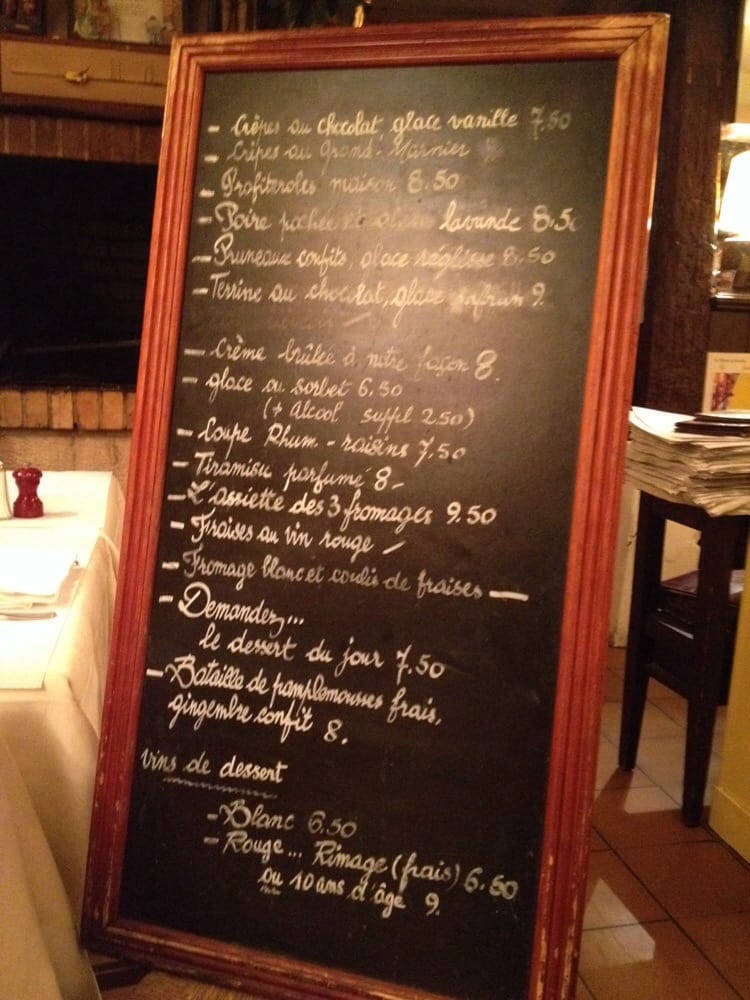 - Crêpes au chocolat, glace vanille 7.50
- Crêpes au Grand-Marnier
- Profiteroles maison 8.50
- Poire pochée glace lavande 8.50
- Pruneaux confits, glace réglisse 8.50
- Terrine au chocolat, glace safran 9.
- Crème brûlée à notre façon 8.
- glace ou sorbet 6.50
(+ Alcool suppl 2.50)
- Coupe Rhum - raisins 7.50
- Tiramisu parfumé 8-
- L'assiette des 3 fromages 9.50
- Fraises au vin rouge -
- Fromage blanc et coulis de fraises -
- Demandez...
le dessert du jour 7.50
- Bataille de pamplemousses frais,
gingembre confit 8.
vins de dessert
- Blanc 6.50
- Rouge... Rimage (frais) 6.50
ou 10 ans d'âge 9.